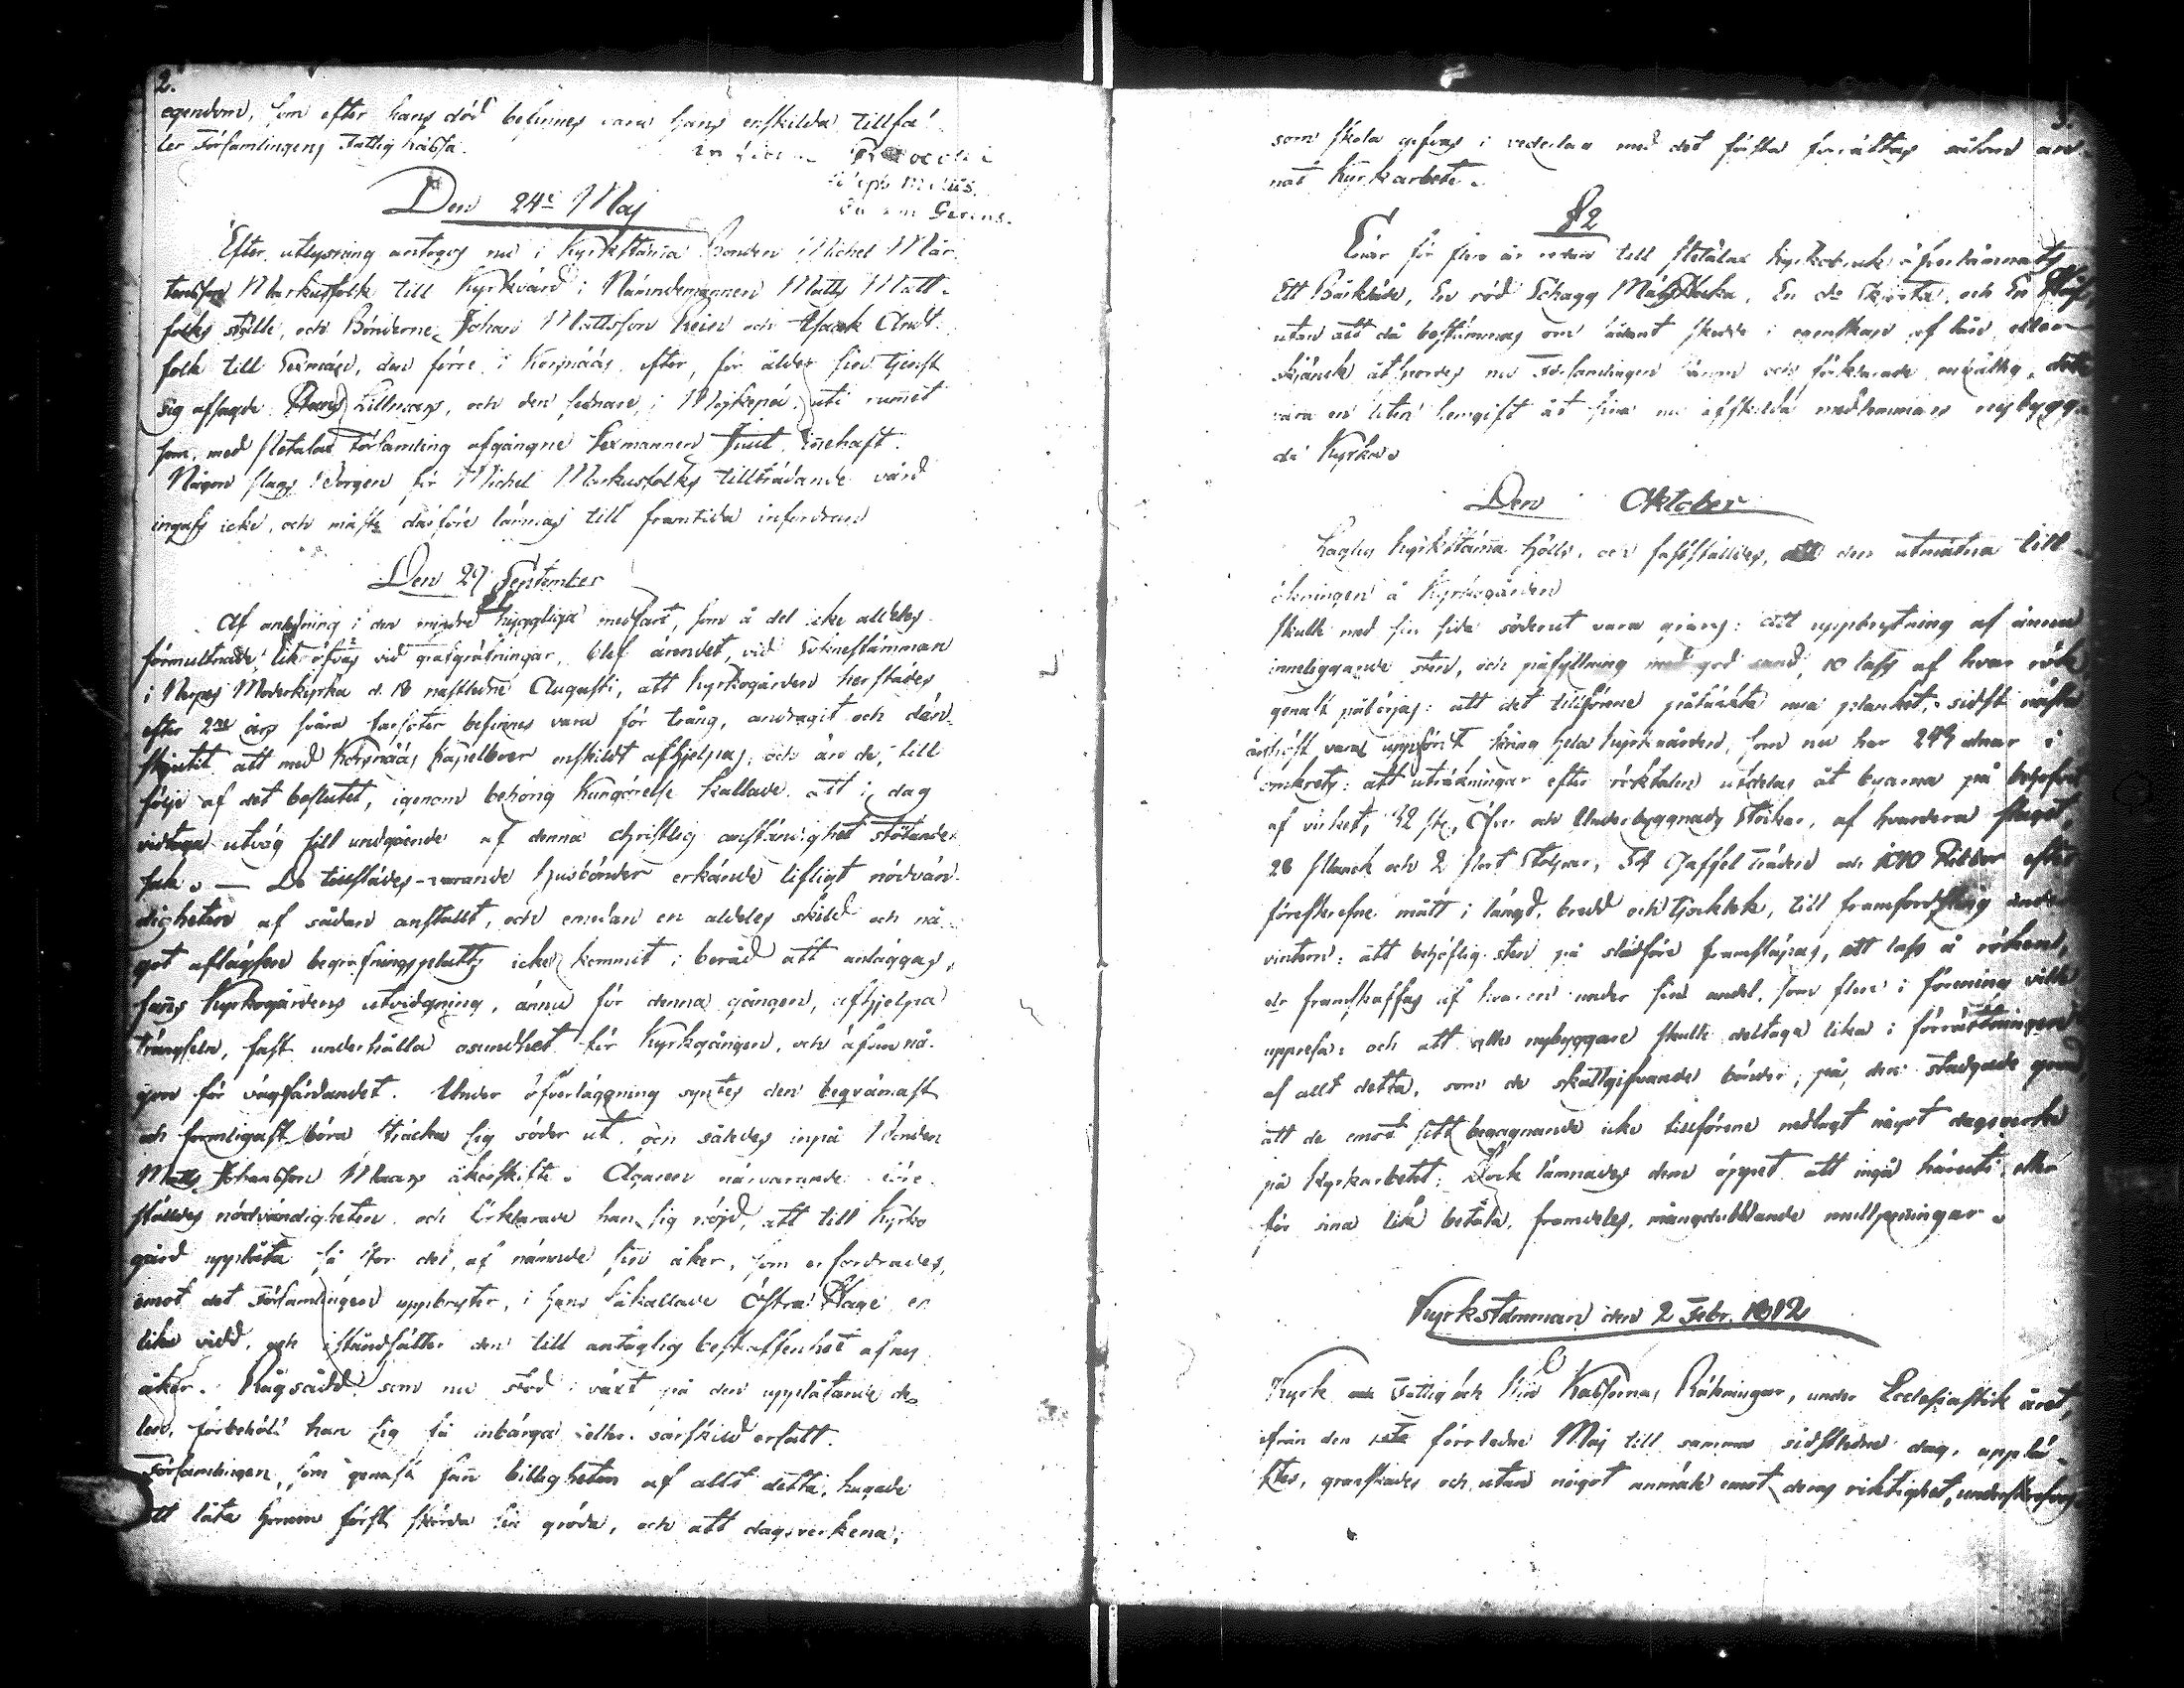 2.
egendom, som efter hans död befinnes vara hans enskilda, tillfal-
ler Församlingens Fattig kassa.
In fidem Protocolli
Den 24de Maj
Efter utlysning antogs nu i Kyrkstämma Bonden Michel Mår-
tensson Markusfolk till Kyrkvärd i Nämndemannen Matts Matt-
folks ställe, och Bönderne Johan Mattsson Rein och Isaak Andt-
folk till Sexmän, den förre i Korsnäs, efter, för ålder sin tjenst
sig afsagde Hans Lillmans, och den sednare i Mojkepä, uti rummet
som, med Petalax Församling afgångne Sexmannen Juut, innehaft.
Någon slags Borgen för Michel Markusfolks tillträdande vård
ingafs icke, och måste därföre lämnas till framtida infordran
Den 29 September
Af anledning i den mindre hyggliga medfart, som å del icke alldeles
förmultnade lik öfvas vid grafgräfningar, blef ärendet, vid Socknestämman
i Nerpes Moderkyrka d. 18 nästledne Augusti, att kyrkogården herstädes
efter 2ne års svåra farsoter befinnes vara för trång, andragit och där-
skjutit att med Korsnäs Kapellboer enskildt afhjelpas, och äro de, till
följe af det beslutet, igenom behörig Kungörelse kallade att i dag
vidtaga utväg till undgående af denna christlig anständighet stötande
sak. — De tillstädes-varande husbönder erkände lifligt nödvän-
digheten af sådan anstallt, och emedan en aldeles skild och nå-
got aflägsen begrafningsplatts icke kommit i beråd att anläggas,
fanns Kyrkogårdens utvidgning, ännu för denna gången, afhjelpa
trängseln, fast underhålla osundhet för Kyrkgången, och äfven nå-
gon för vägfarandet. Under öfverläggning syntes den beqvämast
och formligast böra sträcka sig söder ut, och således inpå Bonden
Matts Johansson Maars åkerskifte. Ägaren närvarande före-
ställdes nödvändigheten, och förklarade han sig nöjd, att till Kyrko
gård upplåta så stor del af nämnde sin åker, som erfordrades,
emot det Församlingen uppbryter, i hans såkallade Östra Hage en
lika vidd, och iståndsätter den till antaglig beskaffenhet af ny
åker. Rågsådd, som nu stod i växt på den upplåtande de-
len, förbehöll han sig få inbärga eller särskild ersatt.
Församlingen, som genast fann billigheten af allt detta, hugade
att låta honom först skörda sin gröda, och att dagsverkena,
3.
som skola gefvas i vederlag med det första förrättas såsom an-
nat Kyrkarbete.
§ 2
Enär för flera år sedan till Petalax Kyrkobruk öfverlämnats
Ett Bårkläde, En röd Schagg Mässhacka, En do Skjorta, och En
utan att då bestämmas om sådant skedde i egenskap af lån, eller
skänk åt hördes nu Församlingen härom och förklarade enhällig, detta
vara en liten hemgift åt sina nu afskilda medhemmans nybygga
de Kyrka.
Den Oktober
Laglig Kyrkstämma hölls, och fastställdes, att den utmätna till
ökningen å Kyrkogården
skulle med sin sida söderut vara gräns: att uppbrytning af ännu
inneliggande sten, och påfyllning med god sand, 10 lass af hvar rök
genast påbörjas: att det tillförene påtänkta nya planket, sidst nästa
årshöst varas uppfördt kring hela Kyrkogården, som nu har 249 alnar i
omkrets: att uträkningar efter röktalen utdelas åt byarna på behofvet
af virket, 32 st. Öfver och Underbyggnads Stockar, af hvardera slaget,
28 Planck och 2 Port Stolpar, 54 Gaffel träden och 1010 Ribbor efter
föreskrefne mått i längd, bredd och tjocklek, till framfordsling
vintern: att behöflig sten på slädföre framsläpas, ett lass å röken,
or framskaffas af hvar en under sin andel, som flere i förening vilje
uppresa: och att alla nybyggare skulle deltaga lika i förrättningen
af allt detta, som de skattgifvande bönder, på den stadgade grund
att de emot sitt begagnande icke tillförene nedlagt något dagsverke
på Kyrkarbetet: Dock lämnades dem öppet att ingå häruti eller
för sina lik betala, framdeles, mångdubblande mullpenningar.
Kyrkstämman den 2 Febr. 1812
Kyrk och Fattig och Kassornas Räkningar, under Ecclesiastik året,
ifrån den 1sta förrledne Maj till samma sidstledne dag, upplä-
stes, granskades och utan något anmärk emot deras riktighet, underskrefvos